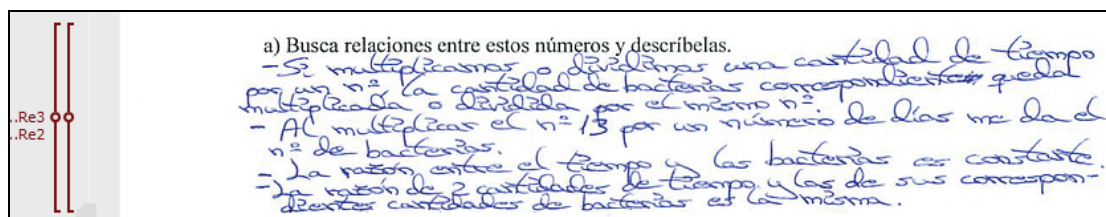 a) Busca relaciones entre estos números y descríbelas.
-Si multiplicamos o dividimos una cantidad de tiempo
por un nº, la cantidad de bacterias correspondiente queda
multiplicada o dividida por el mismo nº.
..Re3
- Al multiplicar el nº 13 por un número de días me da el
..Re2
nº de bacterias.
- La razón entre el tiempo y las bacterias es constante.
-La razón de 2 cantidades de tiempo y las de sus correspon-
dientes cantidades de bacterias es la misma.